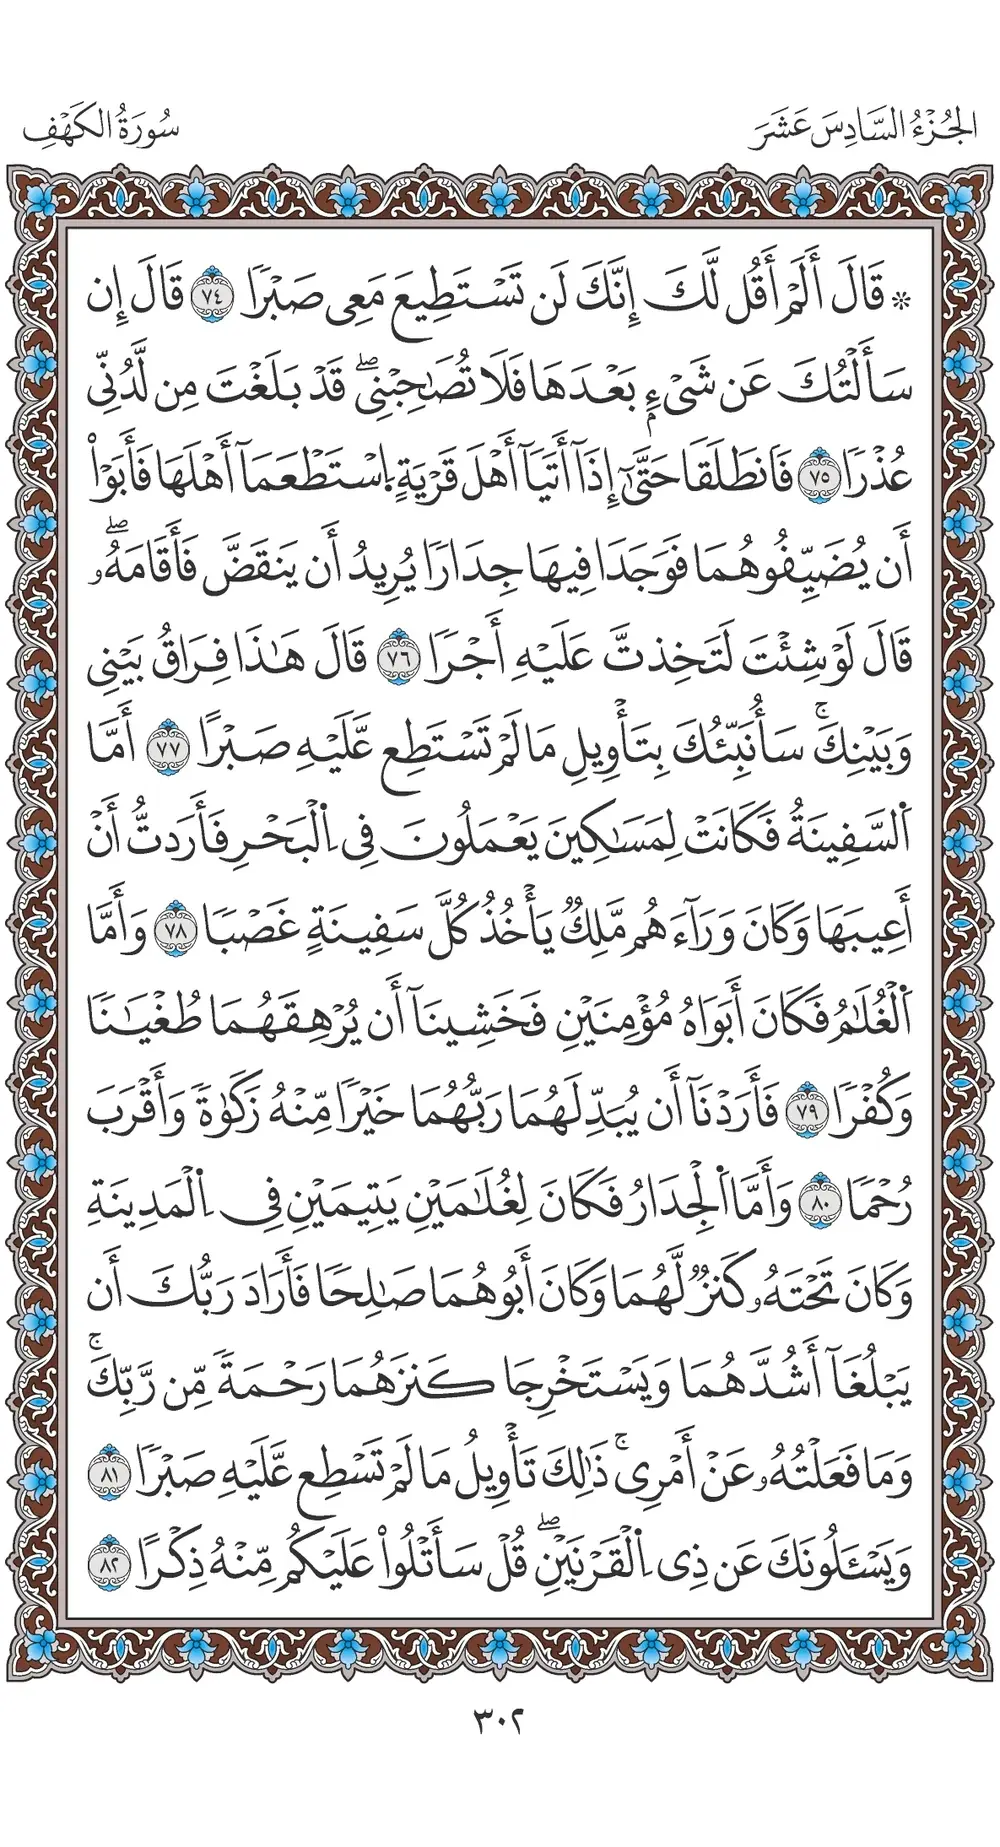 الجُزْءُ السَّادِسَ عَشَرَ
سُورَةُ الكَهْفِ
۞ قَالَ أَلَمْ أَقُل لَّكَ إِنَّكَ لَن تَسْتَطِيعَ مَعِى صَبْرًا ٧٤ قَالَ إِن
سَأَلْتُكَ عَن شَىْءِۭ بَعْدَهَا فَلَا تُصَٰحِبْنِىۖ قَدْ بَلَغْتَ مِن لَّدُنِّى
عُذْرًا ٧٥ فَانطَلَقَا حَتَّىٰٓ إِذَآ أَتَيَآ أَهْلَ قَرْيَةٍ اِ۪سْتَطْعَمَآ أَهْلَهَا فَأَبَوْاْ
أَن يُضَيِّفُوهُمَا فَوَجَدَا فِيهَا جِدَارًا يُرِيدُ أَن يَنقَضَّ فَأَقَامَهُۥۖ
قَالَ لَوْ شِئْتَ لَتَخِذتَّ عَلَيْهِ أَجْرًا ٧٦ قَالَ هَٰذَا فِرَاقُ بَيْنِى
وَبَيْنِكَۚ سَأُنَبِّئُكَ بِتَأْوِيلِ مَا لَمْ تَسْتَطِع عَّلَيْهِ صَبْرًا ٧٧ أَمَّا
اَ۬لسَّفِينَةُ فَكَانَتْ لِمَسَٰكِينَ يَعْمَلُونَ فِى اِ۬لْبَحْرِ فَأَرَدتُّ أَنْ
أَعِيبَهَا وَكَانَ وَرَآءَهُم مَّلِكٌ يَأْخُذُ كُلَّ سَفِينَةٍ غَصْبًا ٧٨ وَأَمَّا
اَ۬لْغُلَٰمُ فَكَانَ أَبَوَاهُ مُؤْمِنَيْنِ فَخَشِينَآ أَن يُرْهِقَهُمَا طُغْيَٰنًا
وَكُفْرًا ٧٩ فَأَرَدْنَآ أَن يُبَدِّلَهُمَا رَبُّهُمَا خَيْرًا مِّنْهُ زَكَوٰةً وَأَقْرَبَ
رُحْمًا ٨٠ وَأَمَّا اَ۬لْجِدَارُ فَكَانَ لِغُلَٰمَيْنِ يَتِيمَيْنِ فِى اِ۬لْمَدِينَةِ
وَكَانَ تَحْتَهُۥ كَنزٌ لَّهُمَا وَكَانَ أَبُوهُمَا صَٰلِحًا فَأَرَادَ رَبُّكَ أَن
يَبْلُغَآ أَشُدَّهُمَا وَيَسْتَخْرِجَا كَنزَهُمَا رَحْمَةً مِّن رَّبِّكَۚ
وَمَا فَعَلْتُهُۥ عَنْ أَمْرِىۚ ذَٰلِكَ تَأْوِيلُ مَا لَمْ تَسْطِع عَّلَيْهِ صَبْرًا ٨١
وَيَسْـَٔلُونَكَ عَن ذِى اِ۬لْقَرْنَيْنِۖ قُلْ سَأَتْلُواْ عَلَيْكُم مِّنْهُ ذِكْرًا ٨٢
٣٠٢